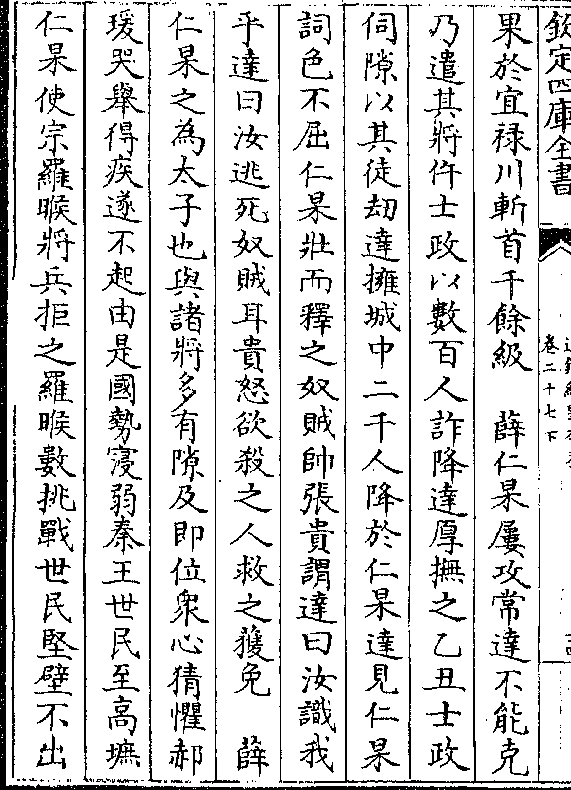 欽定四庫全書
卷二十七下
果於宜禄川斬首千餘級　薛仁杲屢攻常達不能克
乃遣其將仵士政以數百人詐降達厚撫之乙丑士政
伺隙以其徒刼達擁城中二千人降於仁杲達見仁杲
詞色不屈仁杲壯而釋之奴賊帥張貴謂達曰汝識我
乎達曰汝逃死奴賊耳貴怒欲殺之人救之獲免　薛
仁杲之為太子也與諸將多有隙及即位衆心猜懼郝
瑗哭舉得疾遂不起由是國勢寖弱秦王世民至高墌
仁杲使宗羅睺將兵拒之羅睺數挑戰世民堅壁不出